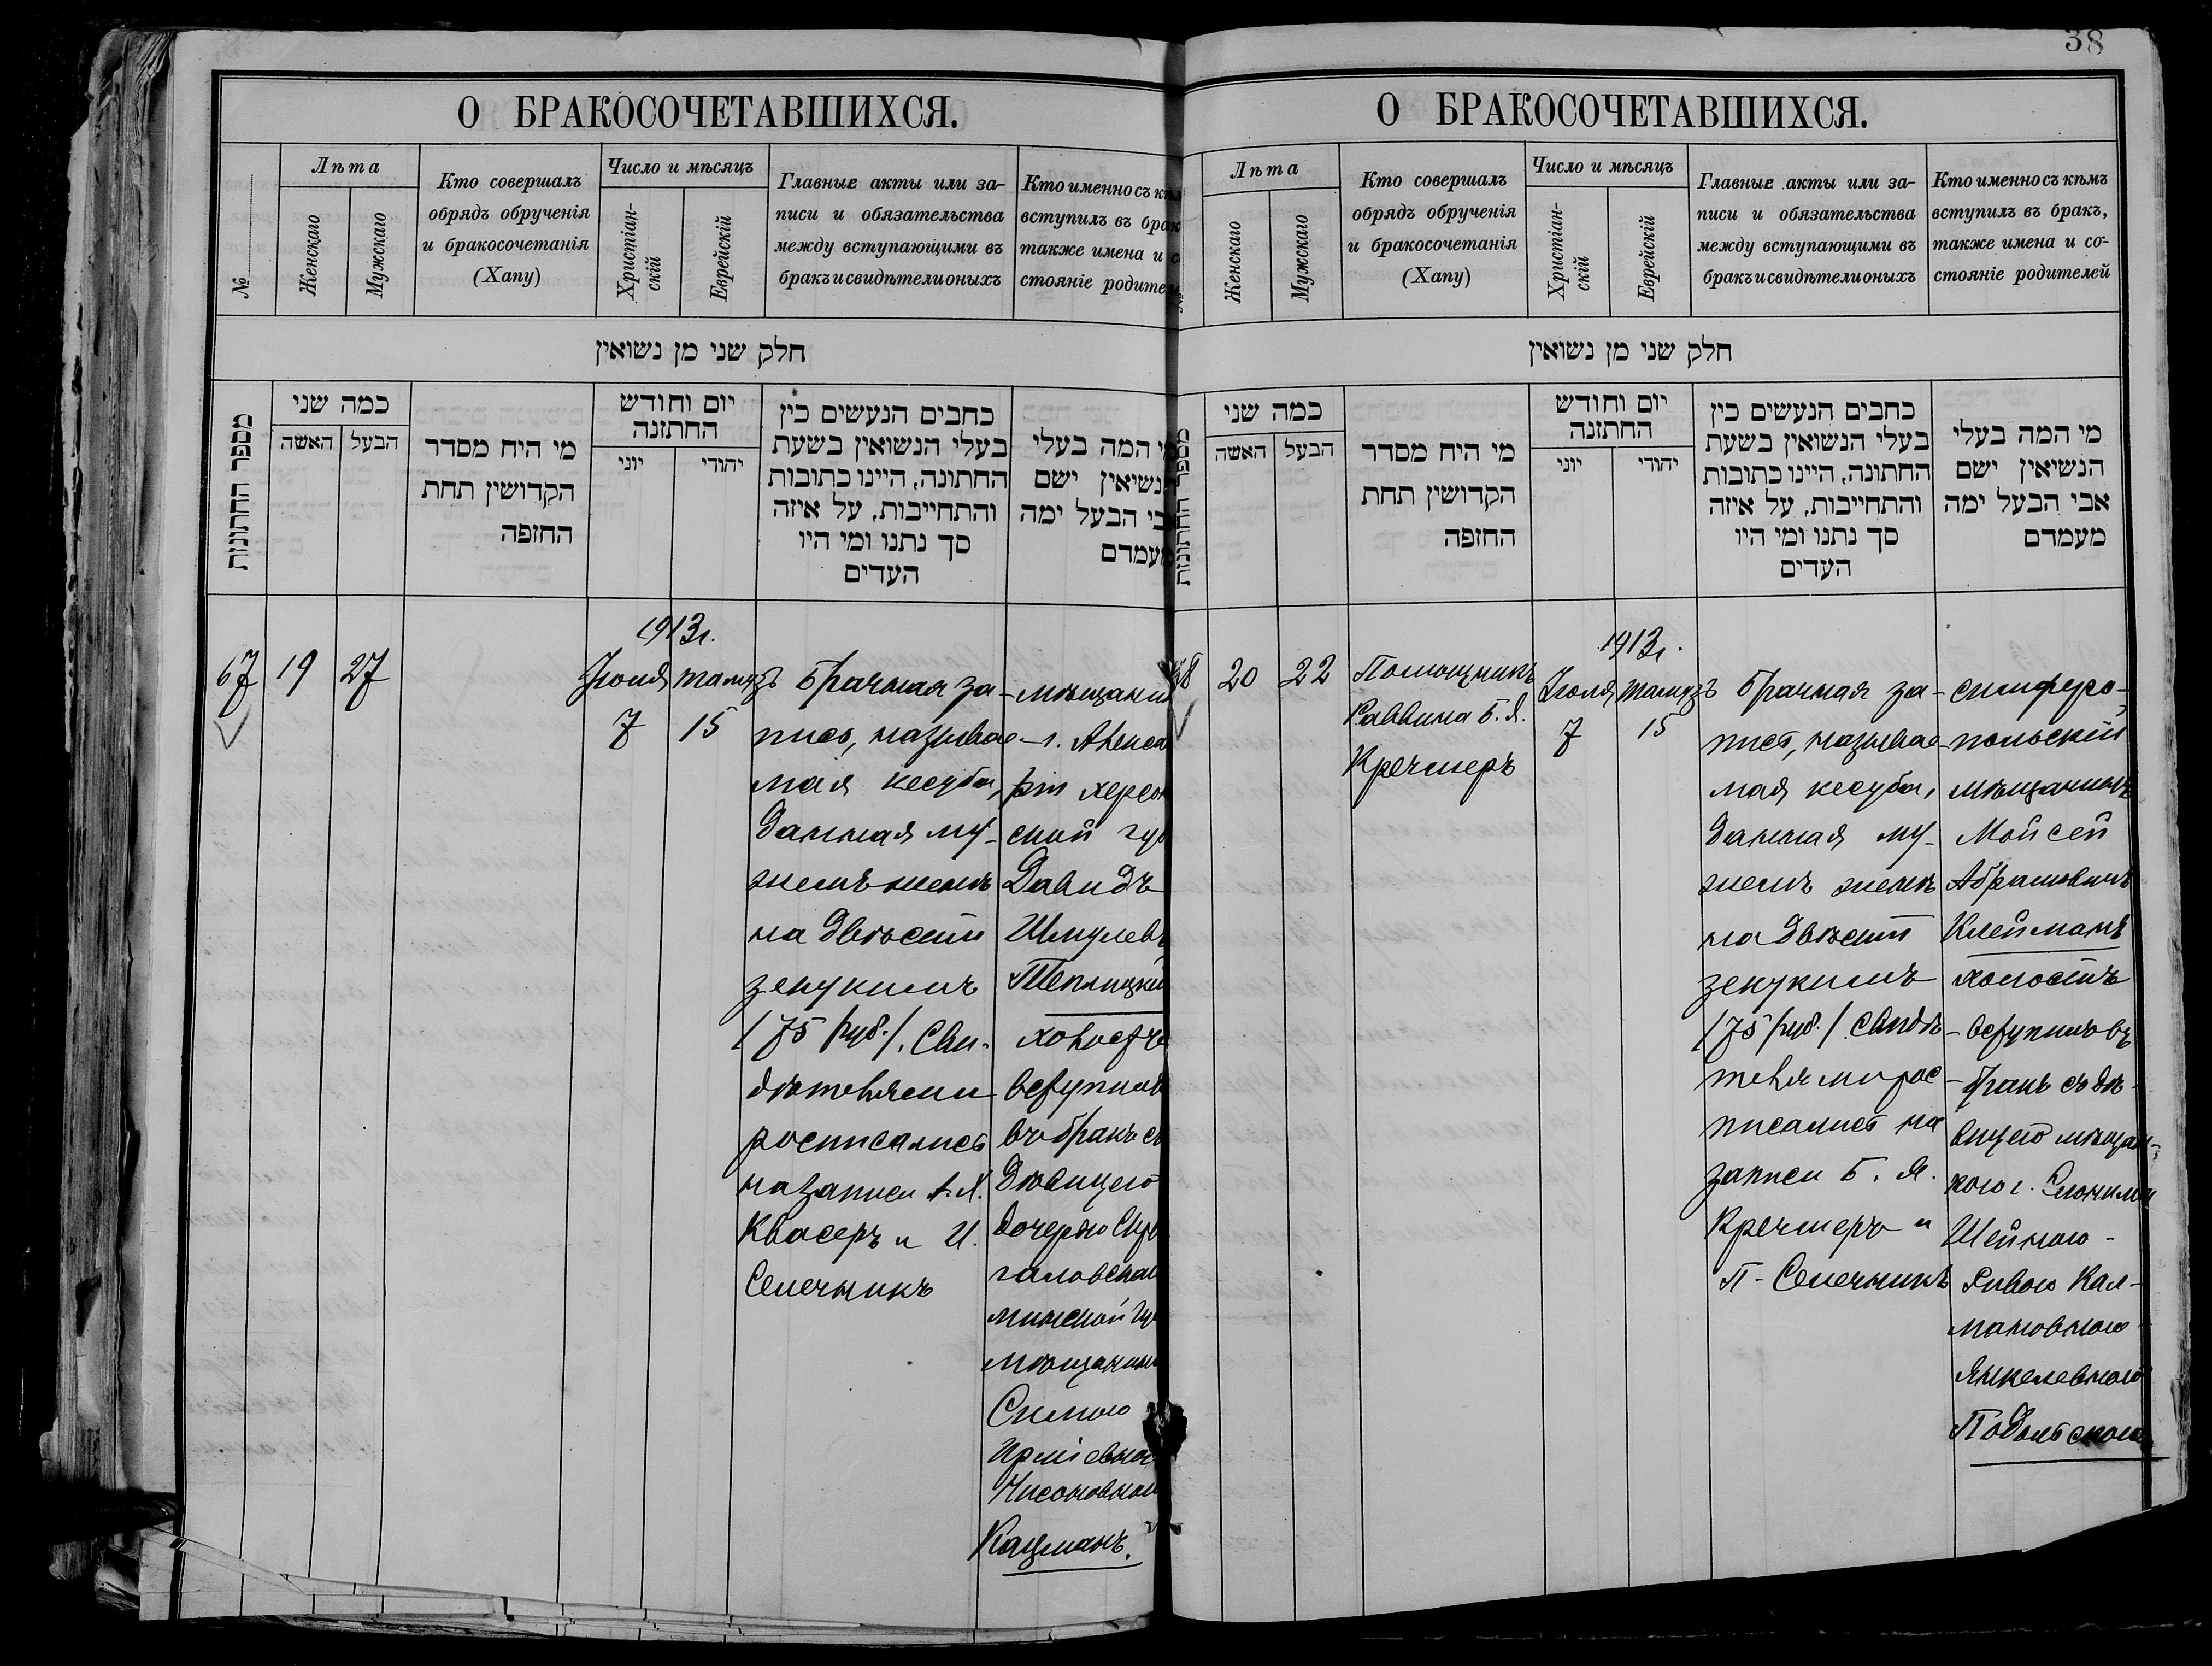 38
О БРАКОСОЧЕТАВШИХСЯ.
№
Лѣта
Женскаго
Мужскаго
Кто совершалъ
обрядъ обрученія
и бракосочетанія
(Хапу)
Число и мѣсяцъ
Христіан-
скій
Еврейскій
Главные акты или за-
писи и обязательства
между вступающими въ
бракъ и свидѣтели оныхъ
Кто именно съ кѣм
вступилъ въ брак
также имена и с
стояніе родител
חלק שני מן נשואין
מספר החתונות
כמה שני
האשה
הבעל
מי היח מסדר
הקדושין תחת
החזפה
יום וחודש
החתזנה
יוני
יהודי
כחבים הנעשים כין
בעלי הנשואין בשעת
החתונה, היינו כתובות
והתחייבות, על איזה
סך נתנו ומי היו
העדים
מי המה בעלי
הנשיאין ישם
אבי הבעל ימה
מעמדם
67
19
27
1913г.
Іюля
7
тамузъ
15
Брачная за-
пись, называе-
мая кесуба,
данная му-
жемъ женѣ
на двѣсти
зекукимъ
/75 руб./. Сви-
дѣтелями
росписались
на записи А. Х.
Квасеръ и И.
Сенечникъ
мѣщанин
г. Алекса
херсон
ской гу
Давидъ
Шмулев
Теплицкій
холостъ
вступилъ
въ бракъ съ
дѣвицею
дочерью
минской гу
мѣщанин
Симою
Кацманъ.
О БРАКОСОЧЕТАВШИХСЯ.
№
Лѣта
Женскаго
Мужскаго
Кто совершалъ
обрядъ обрученія
и бракосочетанія
(Хапу)
Число и мѣсяцъ
Христіан-
скій
Еврейскій
Главные акты или за-
писи и обязательства
между вступающими въ
бракъ и свидѣтели оныхъ
Кто именно съ кѣмъ
вступилъ въ бракъ,
также имена и со-
стояніе родителей
חלק שני מן נשואין
מספר החתונות
כמה שני
האשה
הבעל
מי היח מסדר
הקדושין תחת
החזפה
יום וחודש
החתזנה
יוני
יהודי
כחבים הנעשים כין
בעלי הנשואין בשעת
החתונה, היינו כתובות
והתחייבות, על איזה
סך נתנו ומי היו
העדים
מי המה בעלי
הנשיאין ישם
אבי הבעל ימה
מעמדם
68
20
22
Помощникъ
Раввина Б. Я.
Кречмеръ
1913г.
Іюля
7
тамузъ
15
Брачная за-
пись, называе-
мая кесуба,
данная му-
жемъ женѣ
на двѣсти
зекукимъ
/75 руб./. Свидѣ-
телями рос-
писались на
записи Б. Я.
Кречмеръ и
П. Сенечникъ
симферо-
польскій
мѣщанинъ
Мойсей
Абрамовичъ
Клейманъ
холостъ
вступилъ въ
бракъ съ дѣ-
вицею мѣщан-
кою г. Слонима
Шейною-
Ривою Кал-
мановною-
Янкелевною
Подольскою